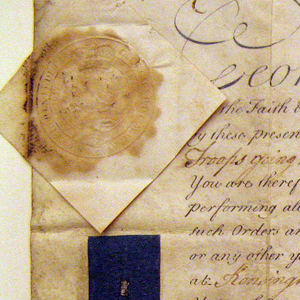 Geor
the Faith
by these presen
Troops going
You are theref
performing al
such Orders an
or any other y
at Kensing